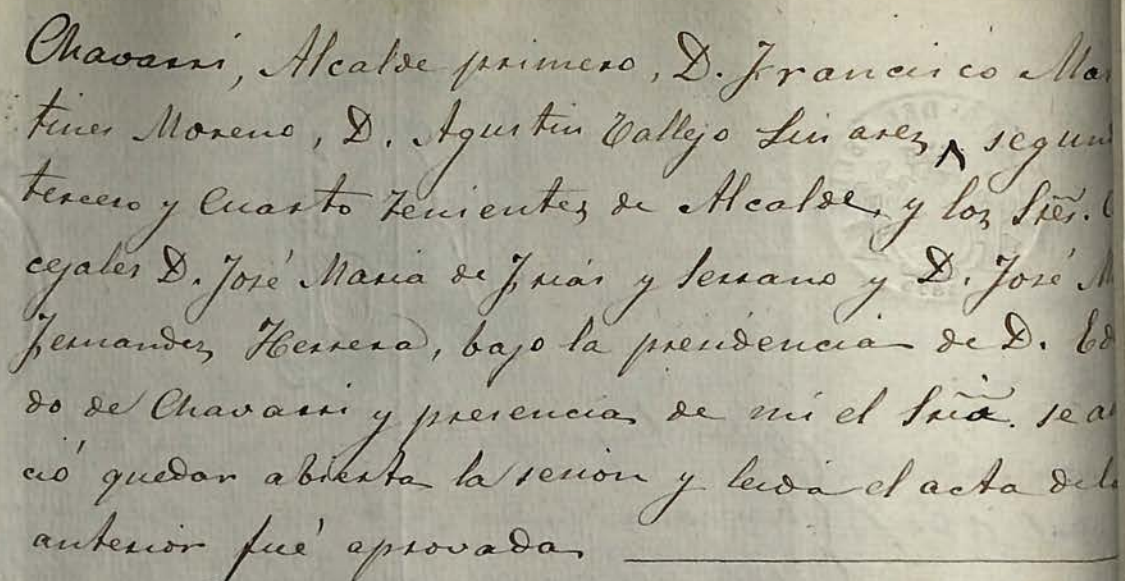 Chavarri, Alcalde primero, D. Francisco Mar
tines Moreno, D. Agustin Vallejo Linarez, segun
tercero y Cuarto Tenientes de Alcalde, y los Sres.
cejales D. José Maria de Frias y Serrano y D. José M
Fernandez Herrera, bajo la presidencia de D. Ed
do de Chavarri y presencia de mi el Srio. se a
ció quedar abierta la sesion y leida el acta de la
anterior fué aprovada